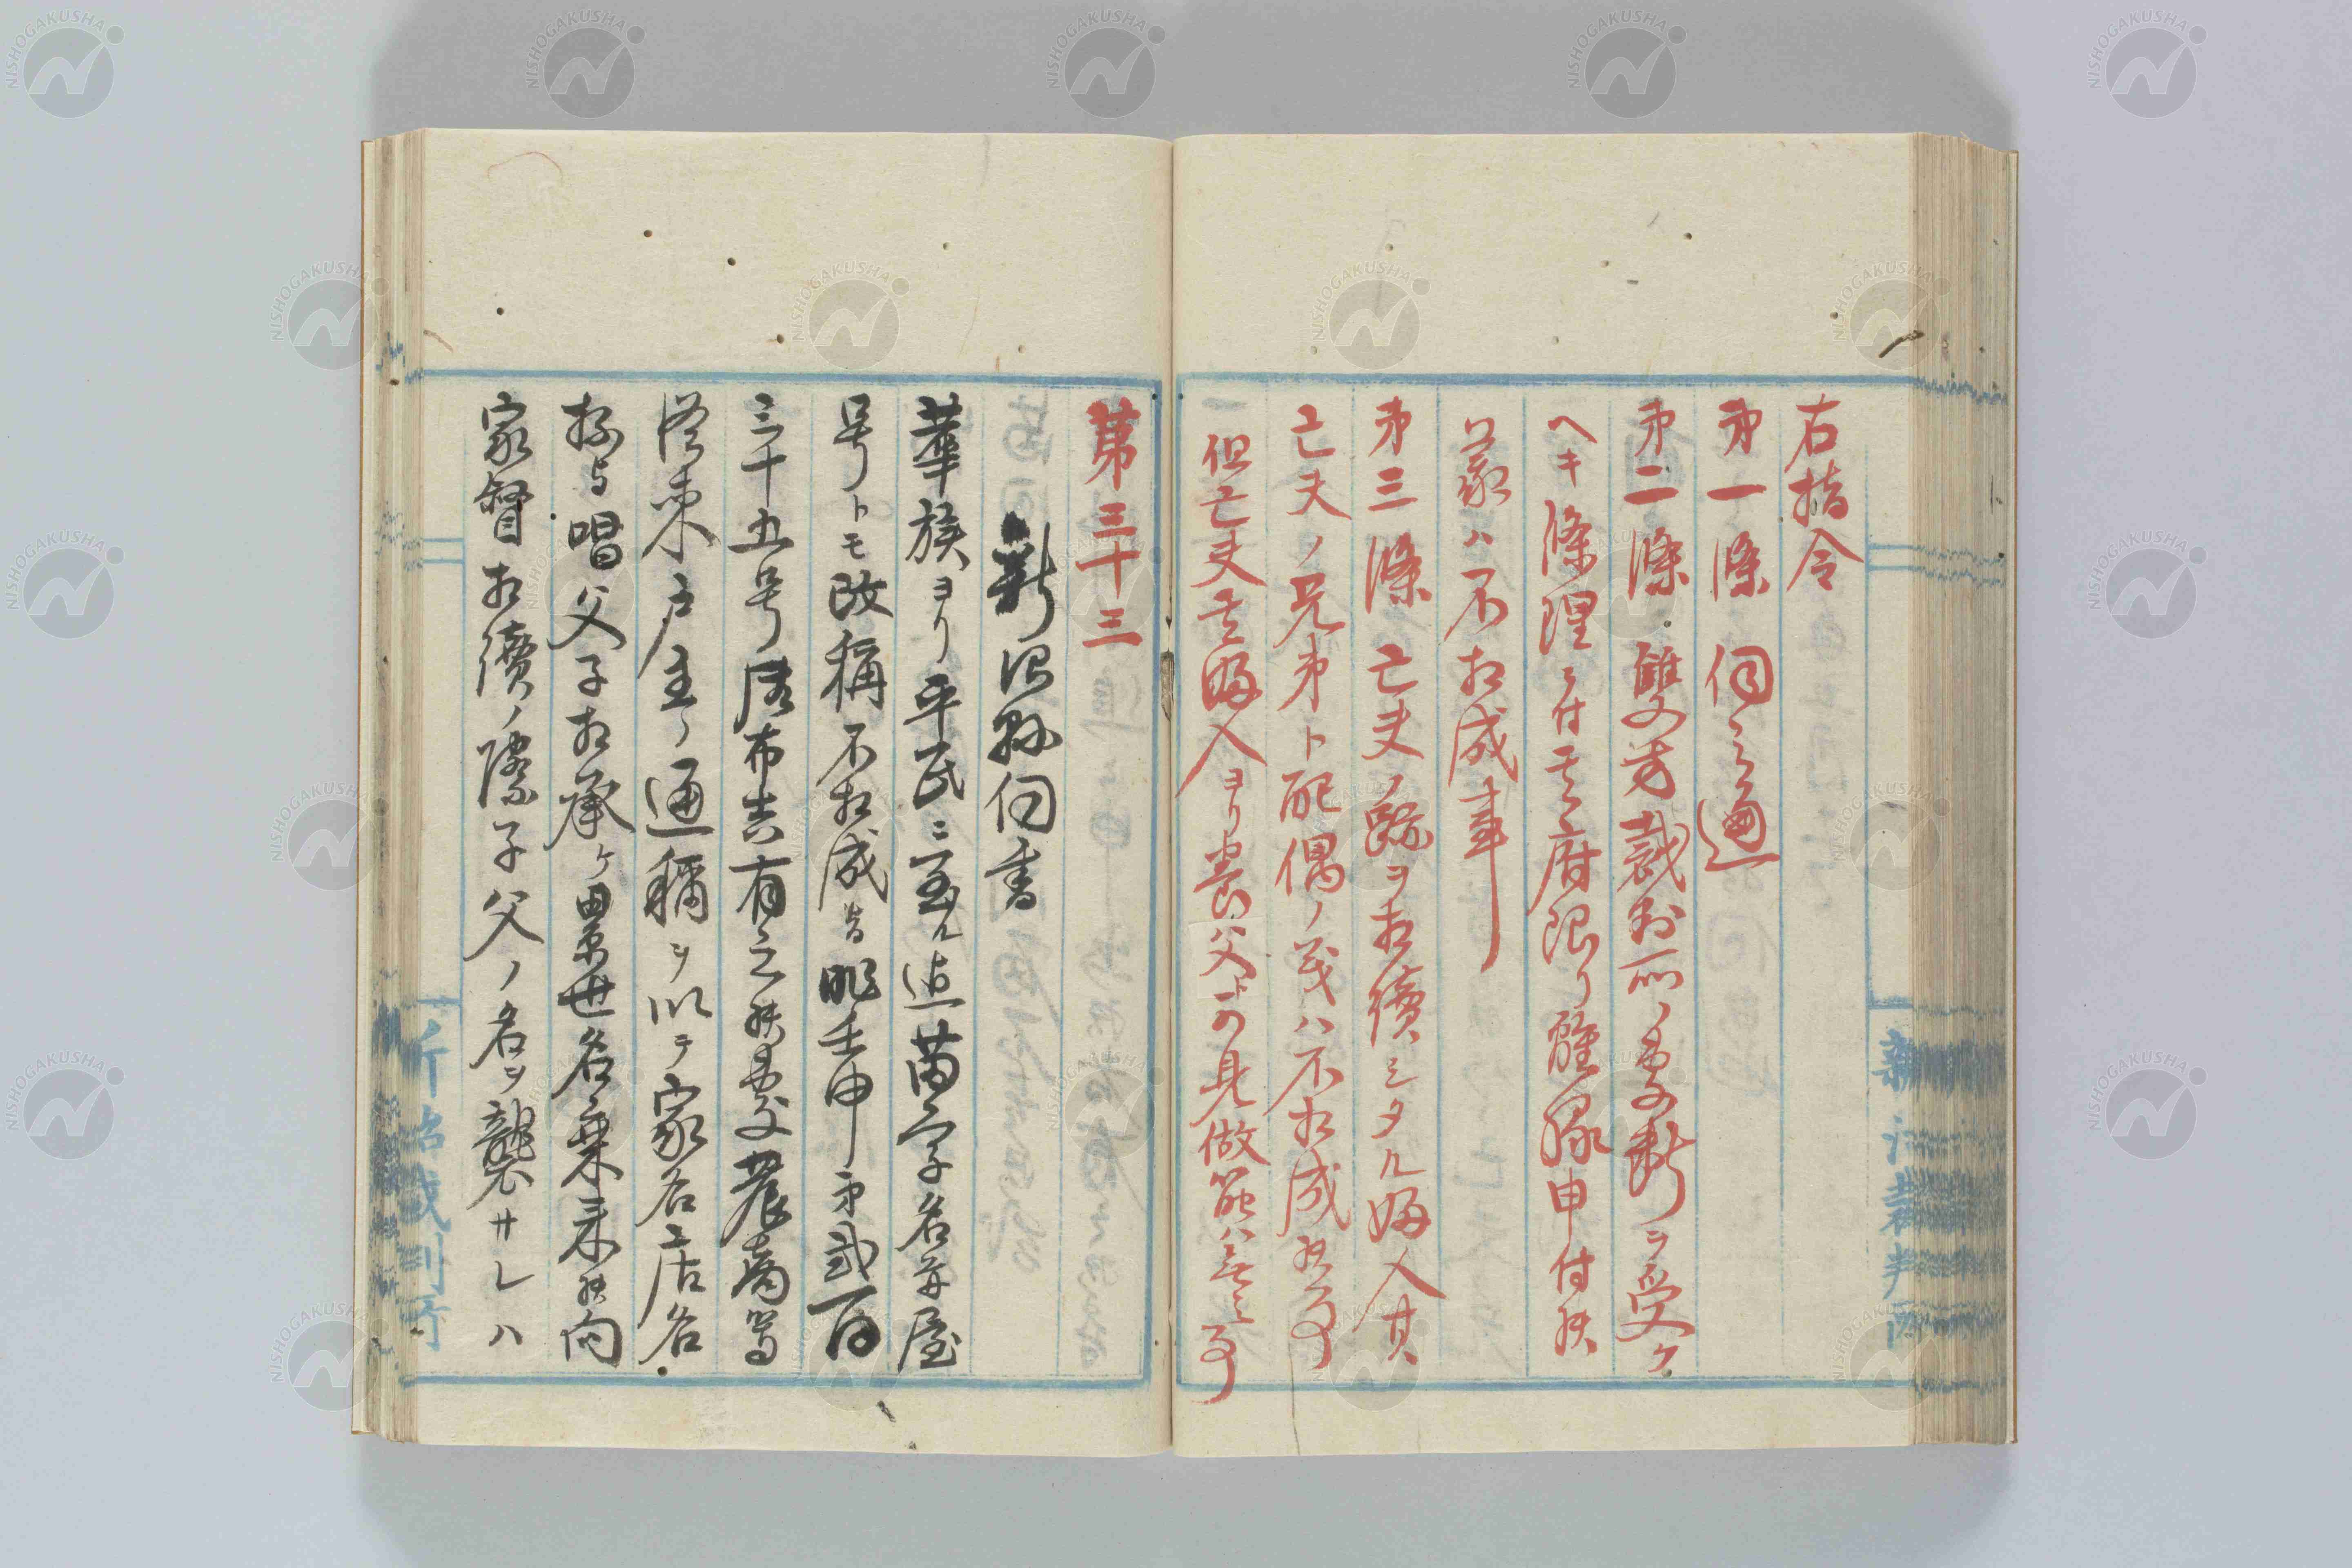 右指令
第一條 伺之通
第二條 雙方裁判所ノ處断ヲ受ク
ヘキ條理ニ付其府限リ離縁申付候
義ハ不相成事
第三條 亡夫ノ跡ヲ相續シタル婦入其
亡夫ノ兄弟ト配偶ノ義ハ不相成候事
但亡夫其婦入ヨリ養父ト可見做筋ハ無之事
第三十三
新潟縣伺書
華族ヨリ平民ニ至ル迄苗字名并屋
号トモ改稱不相成旨昨壬申第貳百
三十五号御布告有之候處農商等
従来戸主ノ通稱ヲ以テ家名又居名
抔与唱父子相承ケ累世名乗来候向
家督相續ノ際子父ノ名ヲ襲サレハ
新治裁判所
新治裁判所
NISHOGAKUSHA